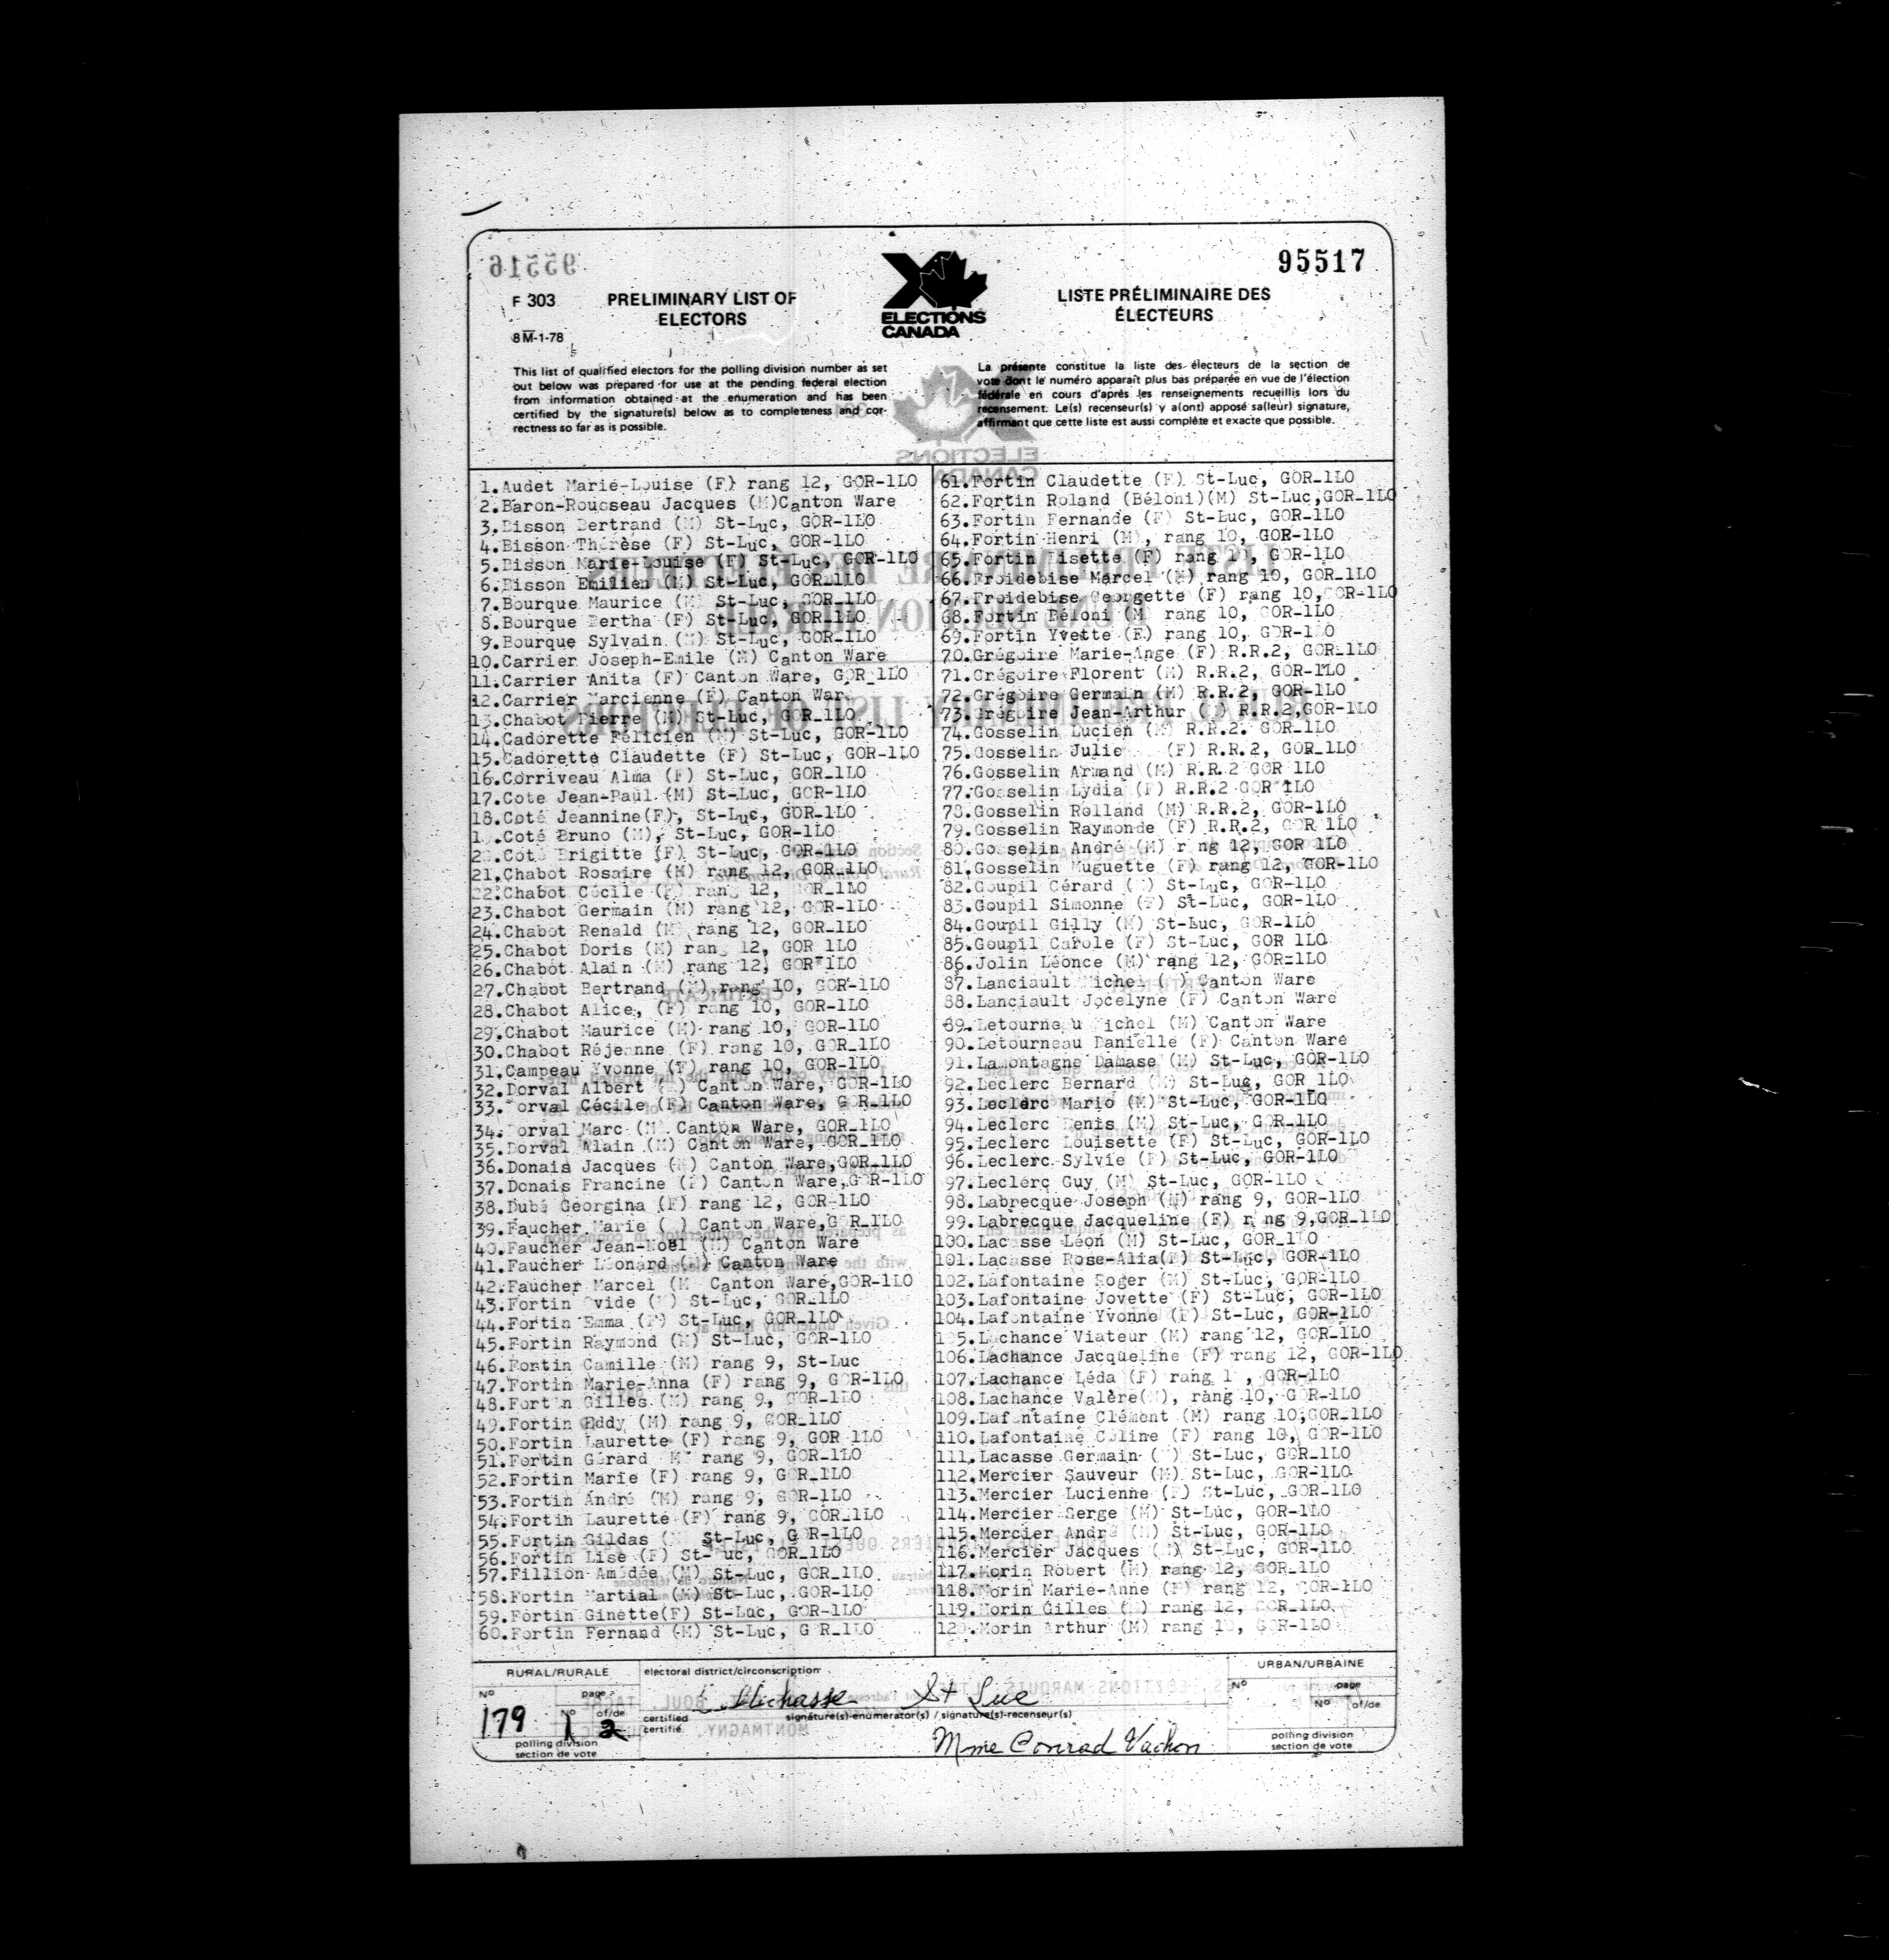 95517
F 303
PRELIMINARY LIST OF
ELECTORS
8M-1-78
ELECTIONS
CANADA
LISTE PRÉLIMINAIRE DES
ÉLECTEURS
This list of qualified electors for the polling division number as set
out below was prepared for use at the pending federal election
from information obtained at the enumeration and has been
certified by the signature(s) below as to completeness and cor-
rectness so far as is possible.
La présente constitue la liste des électeurs de la section de
vote dont le numéro apparaît plus bas préparée en vue de l'élection
fédérale en cours d'après les renseignements recueillis lors du
recensement. Le(s) recenseur(s) y a(ont) apposé sa(leur) signature,
affirmant que cette liste est aussi complète et exacte que possible.
1.Audet Marie-Louise (F) rang 12, GOR-1LO
2.Baron-Rousseau Jacques (M)Canton Ware
3.Bisson Bertrand (M) St-Luc, GOR-1LO
4.Bisson Thérèse (F) St-Luc, GOR-1LO
5.Bisson Marie-Louise (F) St-Luc, GOR-1LO
6.Bisson Emilien (M) St-Luc, GOR_1LO
7.Bourque Maurice (M) St-Luc, GOR_1LO
8.Bourque Bertha (F) St-Luc, GOR_1LO
9.Bourque Sylvain (M) St-Luc, GOR_1LO
10.Carrier Joseph-Emile (M) Canton Ware
11.Carrier Anita (F) Canton Ware, GOR_1LO
12.Carrier Marcienne (F) Canton Ware
13.Chabot Pierre (M) St-Luc, GOR_1LO
14.Cadorette Félicien (M) St-Luc, GOR-1LO
15.Cadorette Claudette (F) St-Luc, GOR-1LO
16.Corriveau Alma (F) St-Luc, GOR_1LO
17.Cote Jean-Paul (M) St-Luc, GOR-1LO
18.Coté Jeannine(F), St-Luc, GOR-1LO
19.Coté Bruno (M), St-Luc, GOR-1LO
20.Coté Brigitte (F) St-Luc, GOR-1LO
21.Chabot Rosaire (M) rang 12, GOR_1LO
22.Chabot Cécile (F) rang 12, GOR_1LO
23.Chabot Germain (M) rang 12, GOR-1LO
24.Chabot Renald (M) rang 12, GOR_1LO
25.Chabot Doris (M) rang 12, GOR 1LO
26.Chabot Alain (M) rang 12, GOR-1LO
27.Chabot Bertrand (M) rang 10, GOR-1LO
28.Chabot Alice, (F) rang 10, GOR-1LO
29.Chabot Maurice (M) rang 10, GOR-1LO
30.Chabot Réjeanne (F) rang 10, GOR_1LO
31.Campeau Yvonne (F) rang 10, GOR-1LO
32.Dorval Albert (M) Canton Ware, GOR-1LO
33.Dorval Cécile (F) Canton Ware, GOR_1LO
34.Dorval Marc (M) Canton Ware, GOR_1LO
35.Dorval Alain (M) Canton Ware, GOR_1LO
36.Donais Jacques (M) Canton Ware,GOR_1LO
37.Donais Francine (F) Canton Ware,GOR-1LO
38.Dubé Georgina (F) rang 12, GOR-1LO
39.Faucher Marie ( ) Canton Ware,GOR_1LO
40.Faucher Jean-Noël (M) Canton Ware
41.Faucher Léonard (M) Canton Ware
42.Faucher Marcel (M) Canton Ware,GOR-1LO
43.Fortin Ovide (M) St-Luc, GOR_1LO
44.Fortin Emma (F) St-Luc, GOR_1LO
45.Fortin Raymond (M) St-Luc, GOR-1LO
46.Fortin Camille (M) rang 9, St-Luc
47.Fortin Marie-Anna (F) rang 9, GOR-1LO
48.Fortin Gilles (M) rang 9, GOR-1LO
49.Fortin Eddy (M) rang 9, GOR_1LO
50.Fortin Laurette (F) rang 9, GOR 1LO
51.Fortin Gérard (M) rang 9, GOR-1LO
52.Fortin Marie (F) rang 9, GOR_1LO
53.Fortin André (M) rang 9, GOR-1LO
54.Fortin Laurette (F) rang 9, GOR_1LO
55.Fortin Gildas (M) St-Luc, GOR-1LO
56.Fortin Lise (F) St-Luc, GOR_1LO
57.Fillion Amédée (M) St-Luc, GOR_1LO
58.Fortin Martial (M) St-Luc, GOR-1LO
59.Fortin Ginette(F) St-Luc, GOR-1LO
60.Fortin Fernand (M) St-Luc, GOR_1LO
61.Fortin Claudette (F) St-Luc, GOR_1LO
62.Fortin Roland (Béloni)(M) St-Luc,GOR_1LO
63.Fortin Fernande (F) St-Luc, GOR-1LO
64.Fortin Henri (M), rang 10, GOR-1LO
65.Fortin Lisette (F) rang 10, GOR-1LO
66.Froidebise Marcel (M) rang 10, GOR_1LO
67.Froidebise Georgette (F) rang 10,GOR-1LO
68.Fortin Béloni (M) rang 10, GOR-1LO
69.Fortin Yvette (F) rang 10, GOR-1LO
70.Grégoire Marie-Ange (F) R.R.2, GOR_1LO
71.Grégoire Florent (M) R.R.2, GOR-1LO
72.Grégoire Germain (M) R.R.2, GOR-1LO
73.Grégoire Jean-Arthur (M) R.R.2,GOR-1LO
74.Gosselin Lucien (M) R.R.2. GOR_1LO
75.Gosselin Julie (F) R.R.2, GOR_1LO
76.Gosselin Armand (M) R.R.2 GOR 1LO
77.Gosselin Lydia (F) R.R.2 GOR-1LO
78.Gosselin Rolland (M) R.R.2, GOR-1LO
79.Gosselin Raymonde (F) R.R.2, GOR 1LO
80.Gosselin André (M) rang 12, GOR 1LO
81.Gosselin Huguette (F) rang 12, GOR-1LO
82.Goupil Gérard (M) St-Luc, GOR-1LO
83.Goupil Simonne (F) St-Luc, GOR-1LO
84.Goupil Gilly (M) St-Luc, GOR-1LO
85.Goupil Carole (F) St-Luc, GOR 1LO
86.Jolin Léonce (M) rang 12, GOR-1LO
87.Lanciault Michel ( ) Canton Ware
88.Lanciault Jocelyne (F) Canton Ware
89.Letourneau Michel (M) Canton Ware
90.Letourneau Danielle (F) Canton Ware
91.Lamontagne Damase (M) St-Luc, GOR-1LO
92.Leclerc Bernard (M) St-Luc, GOR_1LO
93.Leclerc Mario (M) St-Luc, GOR-1LO
94.Leclerc Denis (M) St-Luc, GOR-1LO
95.Leclerc Louisette (F) St-Luc, GOR-1LO
96.Leclerc Sylvie (F) St-Luc, GOR-1LO
97.Leclerc Guy (M) St-Luc, GOR-1LO
98.Labrecque Joseph (M) rang 9, GOR-1LO
99.Labrecque Jacqueline (F) rang 9,GOR_1LO
100.Lacasse Léon (M) St-Luc, GOR_1LO
101.Lacasse Rose-Alia(F) St-Luc, GOR-1LO
102.Lafontaine Roger (M) St-Luc, GOR-1LO
103.Lafontaine Jovette (F) St-Luc, GOR-1LO
104.Lafontaine Yvonne (F) St-Luc, GOR-1LO
105.Lachance Viateur (M) rang 12, GOR_1LO
106.Lachance Jacqueline (F) rang 12, GOR-1LO
107.Lachance Léda (F) rang 1 , GOR-1LO
108.Lachance Valère(M), rang 10, GOR-1LO
109.Lafontaine Clément (M) rang 10,GOR_1LO
110.Lafontaine Céline (F) rang 10, GOR-1LO
111.Lacasse Germain ( ) St-Luc, GOR_1LO
112.Mercier Sauveur (M) St-Luc, GOR-1LO
113.Mercier Lucienne (F) St-Luc, GOR-1LO
114.Mercier Serge (M) St-Luc, GOR-1LO
115.Mercier André (M) St-Luc, GOR-1LO
116.Mercier Jacques (M) St-Luc, GOR-1LO
117.Morin Robert (M) rang 12, GOR_1LO
118.Morin Marie-Anne (F) rang 12, GOR-1LO
119.Morin Gilles (M) rang 12, GOR_1LO
120.Morin Arthur (M) rang 1 , GOR-1LO
RURAL/RURALE
No
page
No of/de
179 1 2
polling division
section de vote
electoral district/circonscription
St Luc
certified
certifié
signature(s)-enumerator(s) / signature(s)-recenseur(s)
Mme Conrad Vachon
URBAN/URBAINE
No
page
No of/de
polling division
section de vote